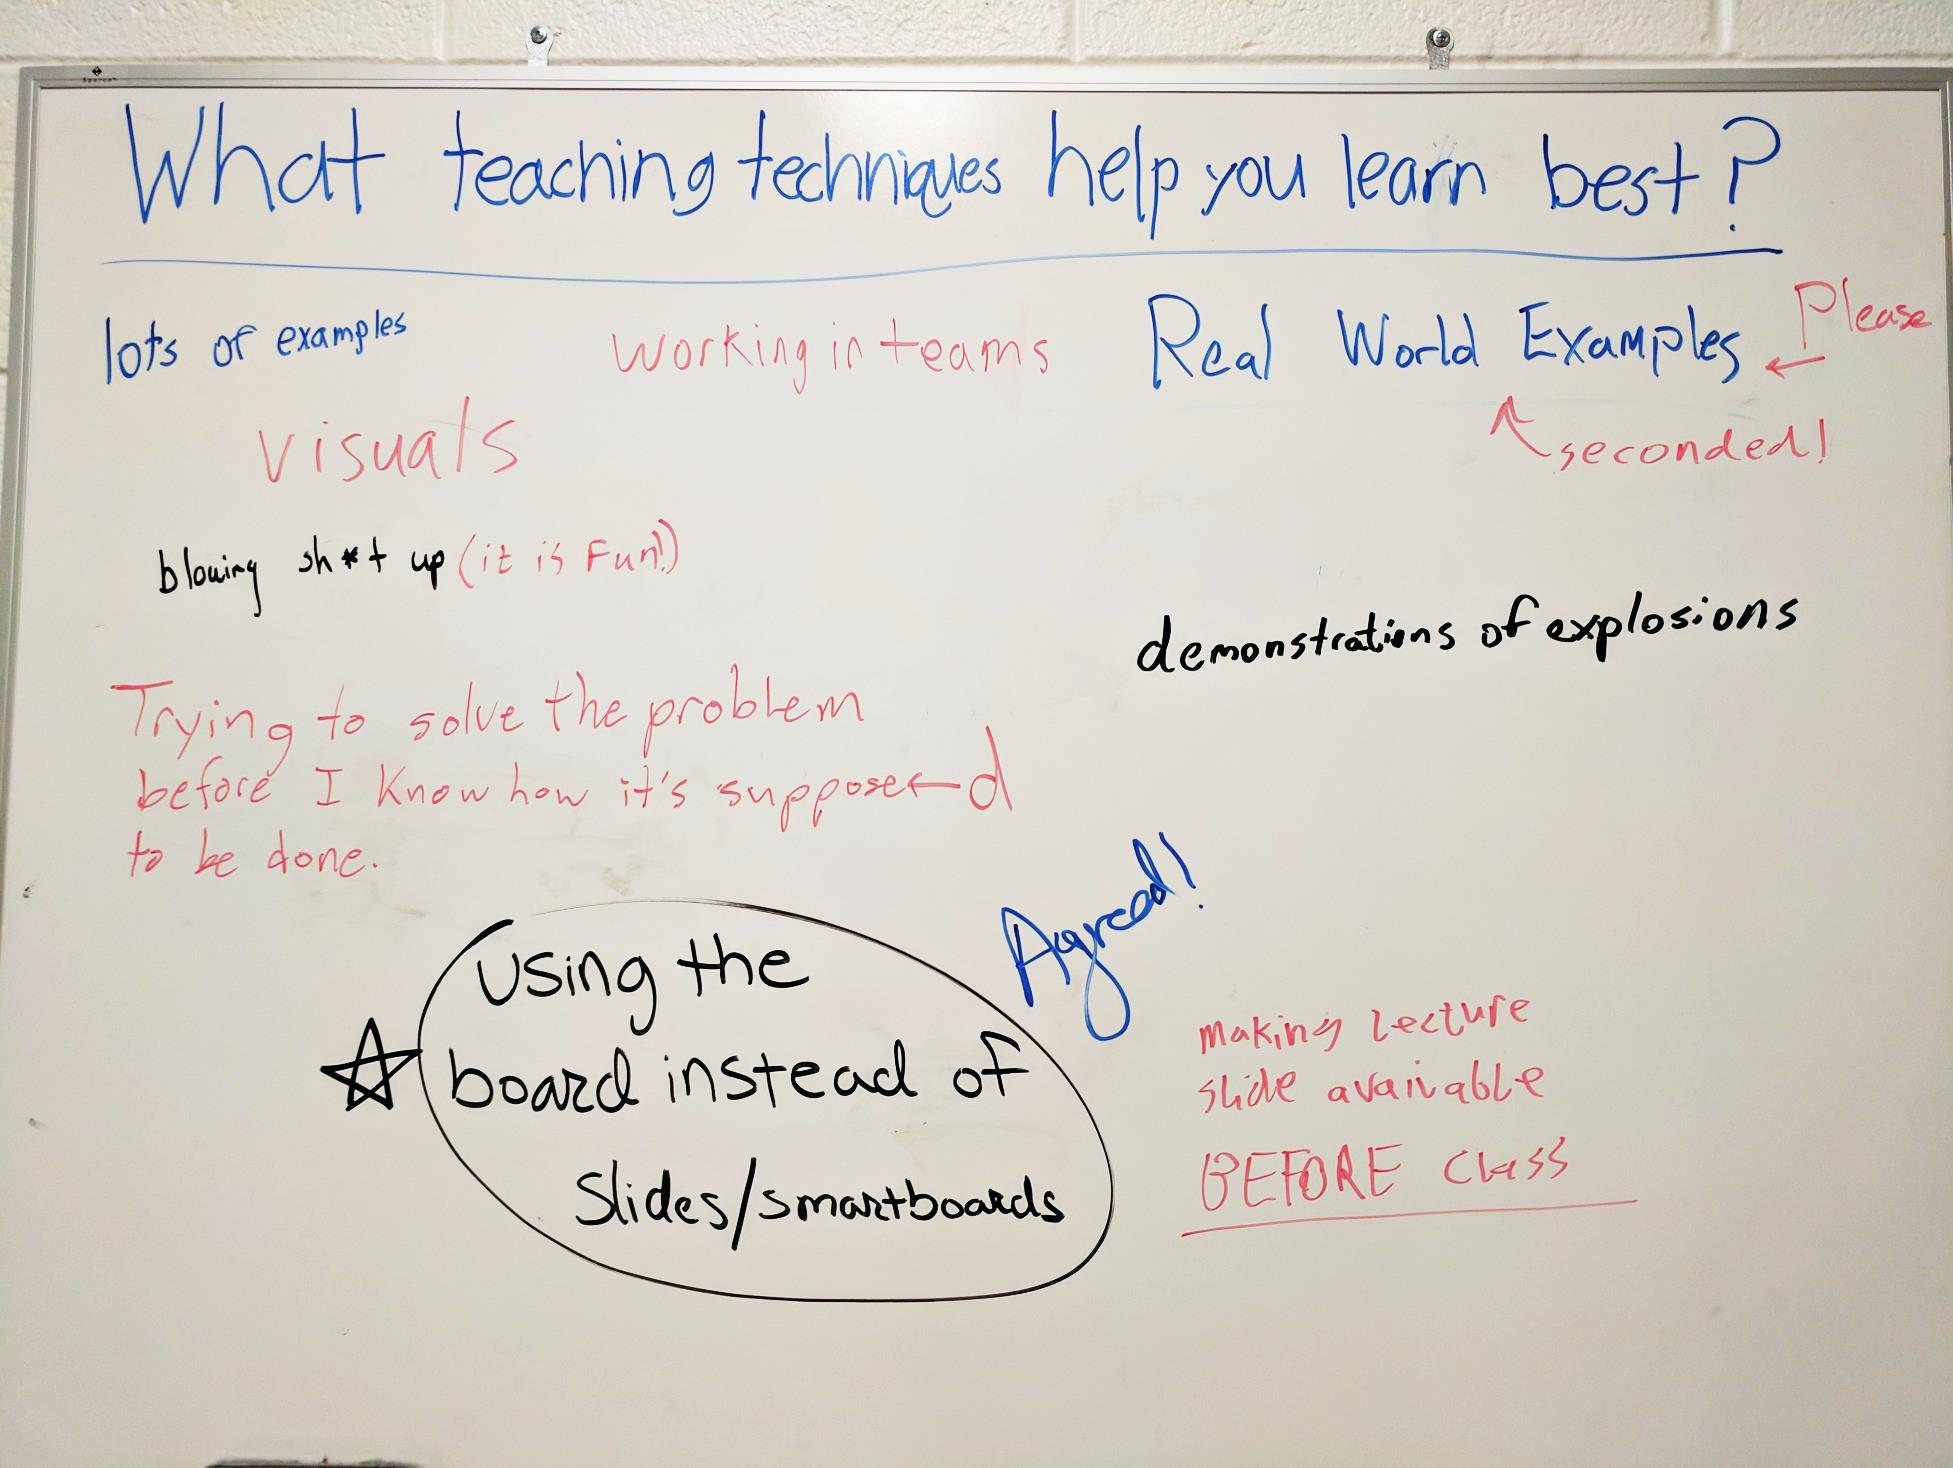 What teaching techniques help you learn best?
lots of examples
working in teams
Real World Examples
Please
seconded!
visuals
blowing sh*t up (it is Fun!)
demonstrations of explosions
Trying to solve the problem
before I know how it's suppose←d
to be done.
Agreed!
Using the
board instead of
Slides/smartboards
making lecture
slide available
BEFORE Class